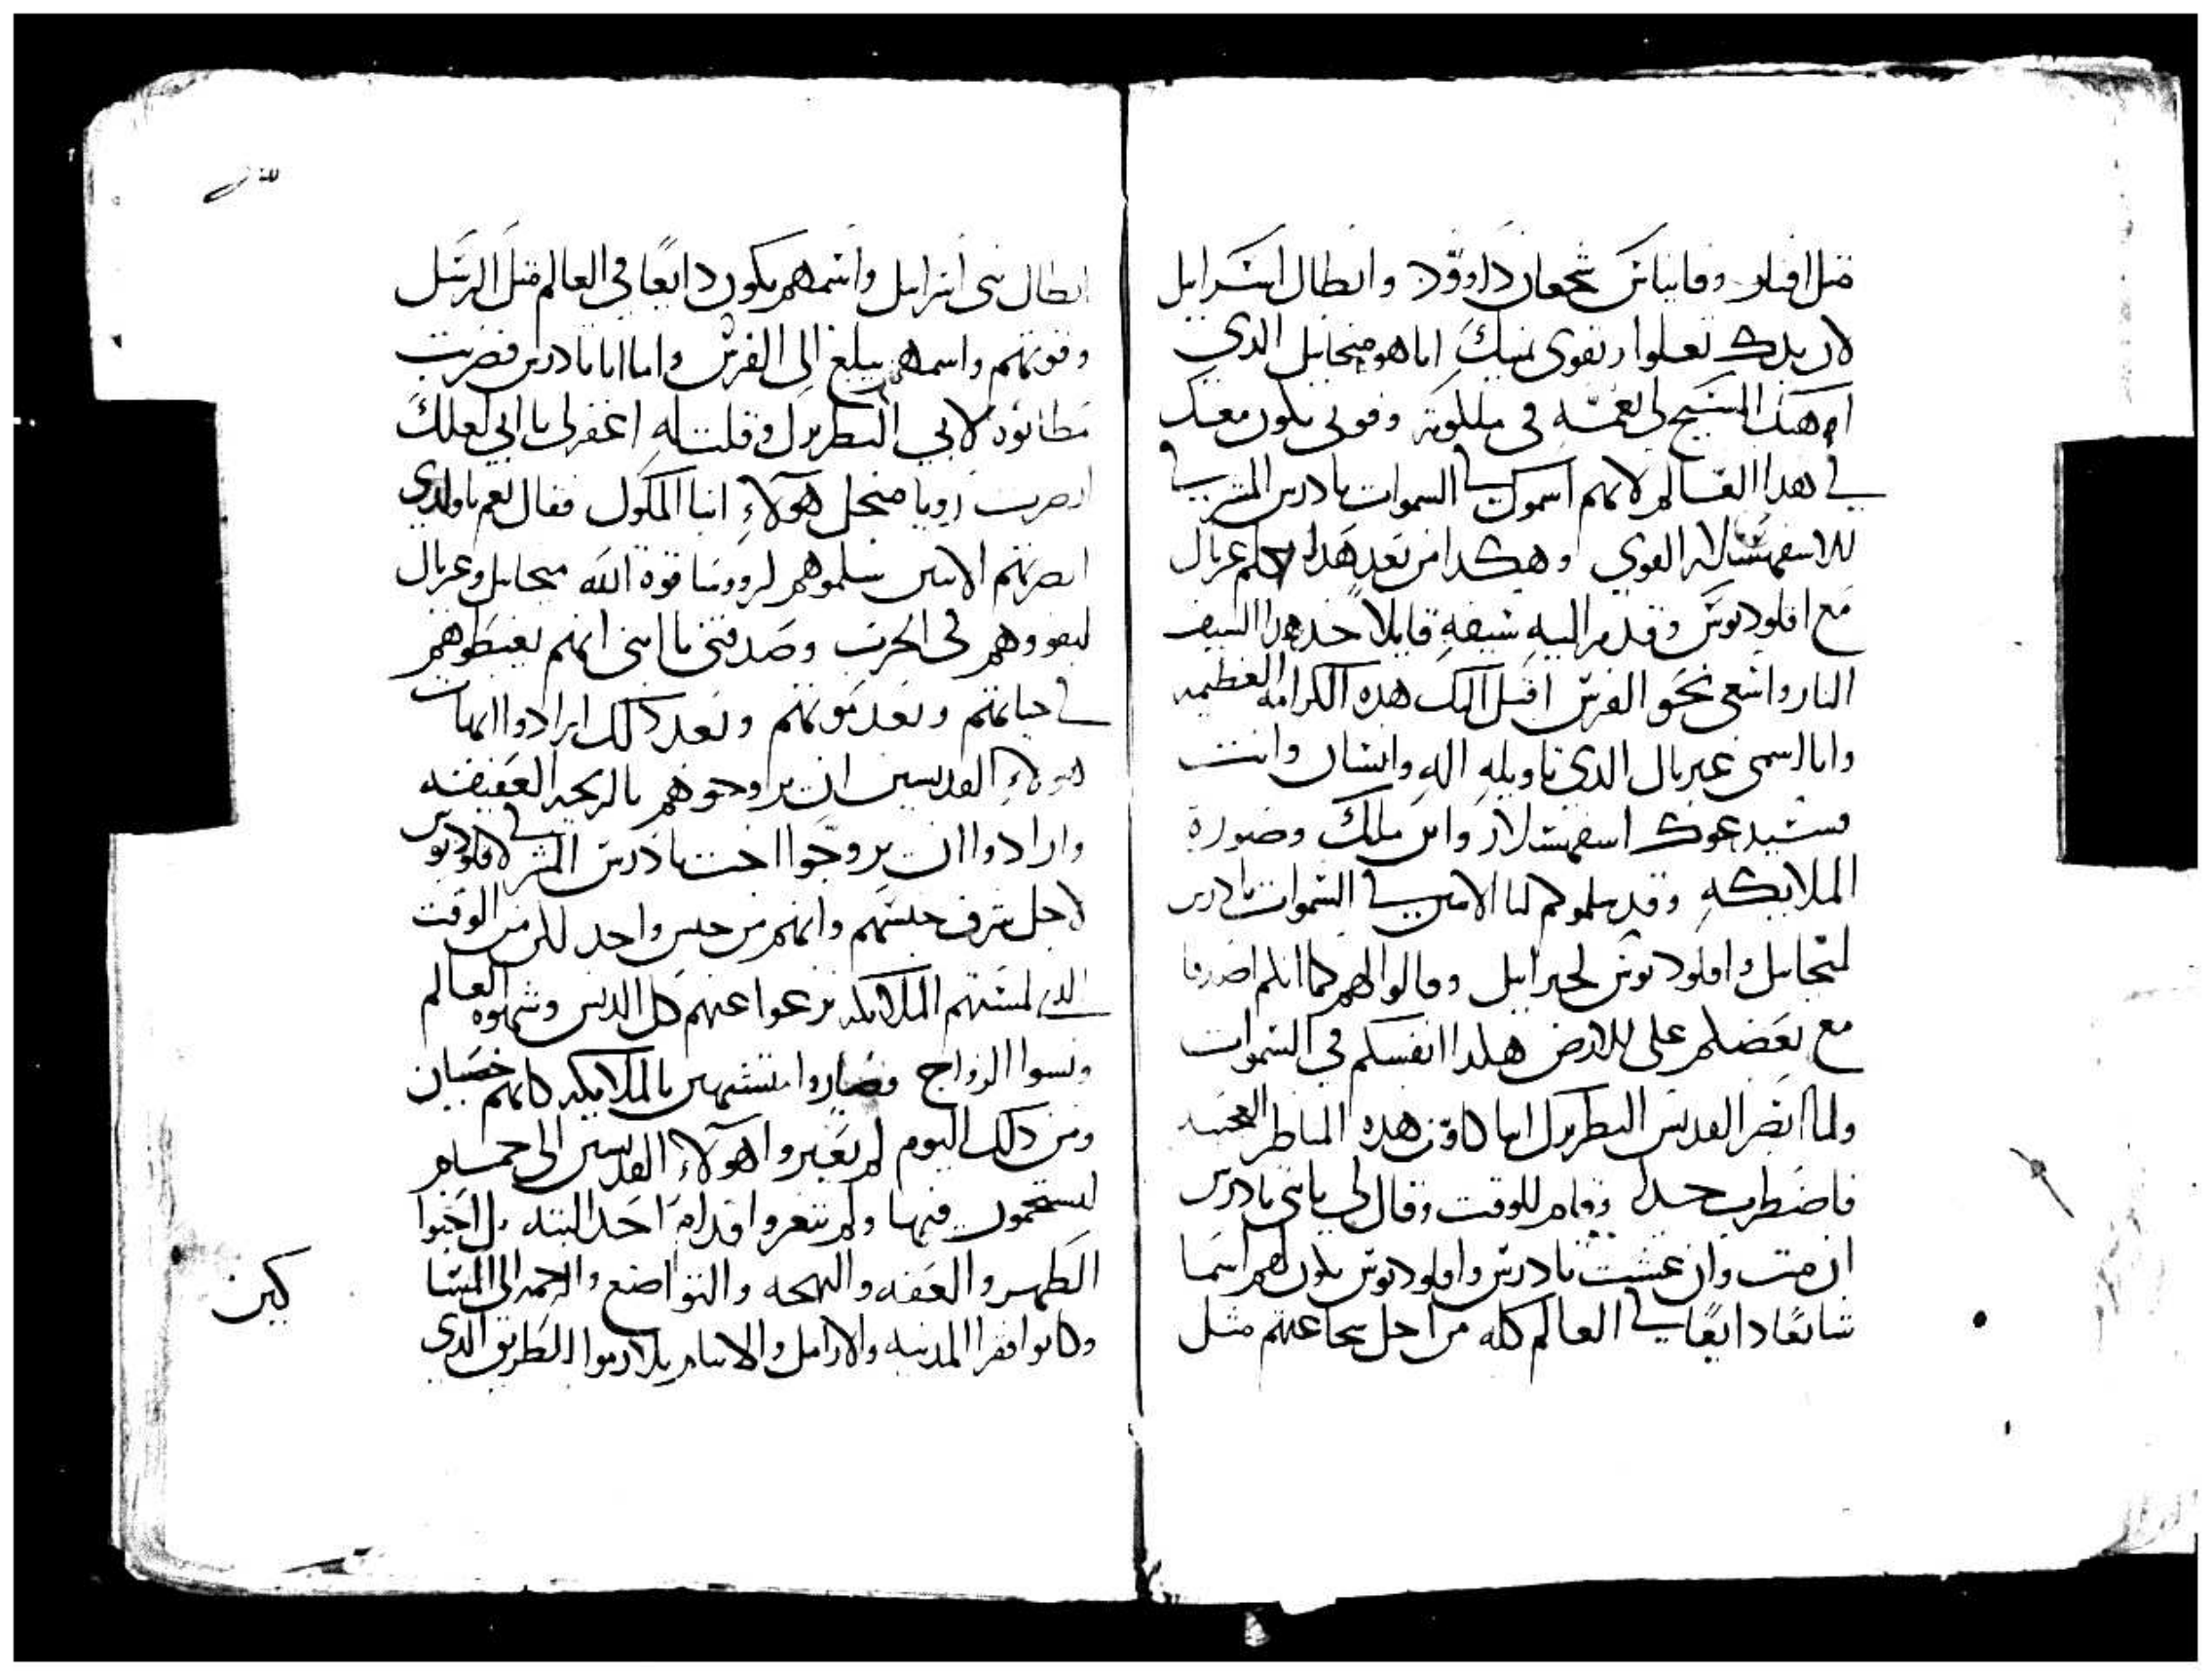 مثل افنار وفانياس شجعان داوود وابطال اسرايل
لان يدك تعلوا وتقوى يمينك انا هو ميخايل الذي
اوهبك المسيح لي نعمته في ملكوته وقوتي يكون معك
في هذا العالم لانهم اسموك في السموات تادرس المشرقي
للاسفهسلار القوي وهكذا من بعد هذا كلم غبريال
مع اقلوديوس وقدم اليه سيفه قايلا خد هذا السيف
النار واسعى نحو الفرس اقبل اليك هذه الكرامة العظيمه
وانا اسمي غبريال الذي تاويله اله وانسان وانت
فسيدعوك اسفهسلار وابن ملك وصورة
الملايكه وقد سلموكم لنا الامين في السموات تادرس
لميخايل واقلوديوس لجبرايل وقالوا لهم كما انكم اصدقا
مع بعضكم على الارض هكذا انفسكم في السموات
ولما ابصر القديس البطريرك ايباكاوس هذه المناظر العجيبه
فاضطرب جدا وقام للوقت وقال لي يا بني تادرس
ان مت وان عشت تادرس واقلوديوس يكون لهم اسما
شايعا دايعا في العالم كله من اجل شجاعتهم مثل
ابطال بني اسرايل واسمهم يكون دايعا في العالم مثل الرسل
وقوتهم واسمهم يبلغ الى الفرس واما انا تادرس فضربت
مطانوه لابي البطريرك وقلت له اغفر لي يا ابي لعلك
ابصرت رويا من اجل هولاء ابنا الملوك فقال نعم يا ولدي
ابصرتهم الامس سلموهم لروسا قوة الله ميخايل وغبريال
ليقووهم في الحرب وصدقني يا ابني انهم يغبطوهم
في حياتهم وبعد موتهم وبعد ذلك ارادوا امهات
هولاء القديسين ان يزوجوهم بالزيجه العفيفه
وارادوا ان يزوجوا اخت تادرس المشرقي لاقلوديوس
لاجل شرف جنسهم وانهم من جنس واحد لكن من الوقت
الذي لمستهم الملايكه نزعوا عنهم كل الدنس وشهوة العالم
ونسوا الزواج وصاروا متشبهين بالملايكه كانهم خصيان
ومن ذلك اليوم لم يعبروا هولاء القديسين الى حمام
ليستحمون فيها ولم يتعروا قدام احد البته بل احبوا
الطهر والعفه والبهجه والتواضع والرحمه الى المسا
وكانوا فقرا المدينه والارامل والايتام يلازموا الطريق الذي